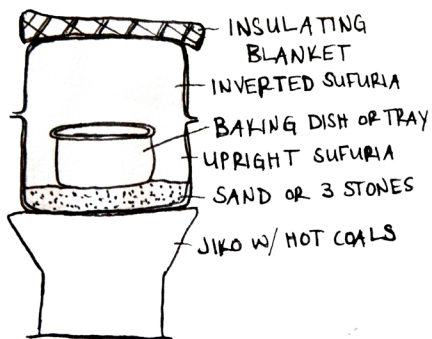 INSULATING
BLANKET
INVERTED SUFURIA
BAKING DISH OR TRAY
UPRIGHT SUFURIA
SAND OR 3 STONES
JIKO W/ HOT COALS